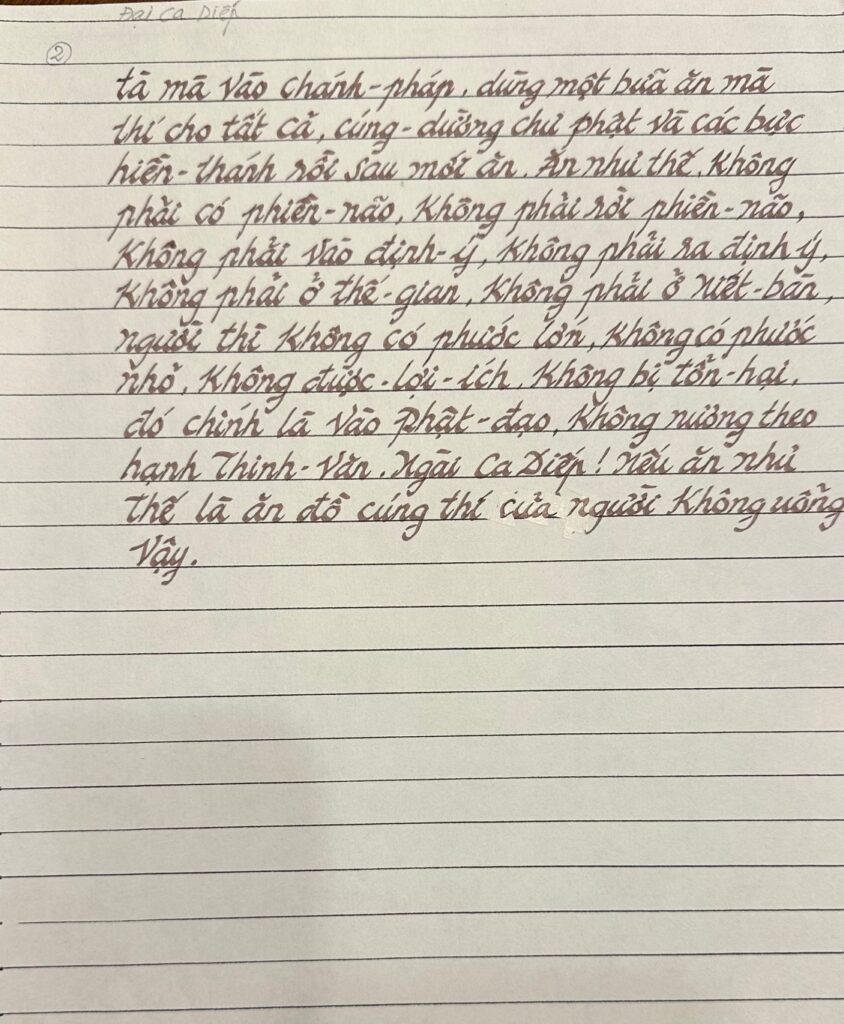 Đại Ca Diếp
②
tà mà vào chánh-pháp, dùng một bữa ăn mà
thí cho tất cả, cúng-dường chư phật và các bực
hiền-thánh rồi sau mới ăn. Ăn như thế, Không
phải có phiền-não, Không phải rời phiền-não,
Không phải vào định-ý, Không phải ra định ý,
Không phải ở thế-gian, Không phải ở Niết-bàn,
người thí Không có phước lớn, Không có phước
nhỏ, Không được-lợi-ích, Không bị tổn-hại,
đó chính là vào Phật-đạo, Không nương theo
hạnh Thinh-Văn. Ngài Ca Diếp! Nếu ăn như
thế là ăn đồ cúng thí của người Không uổng
Vậy.